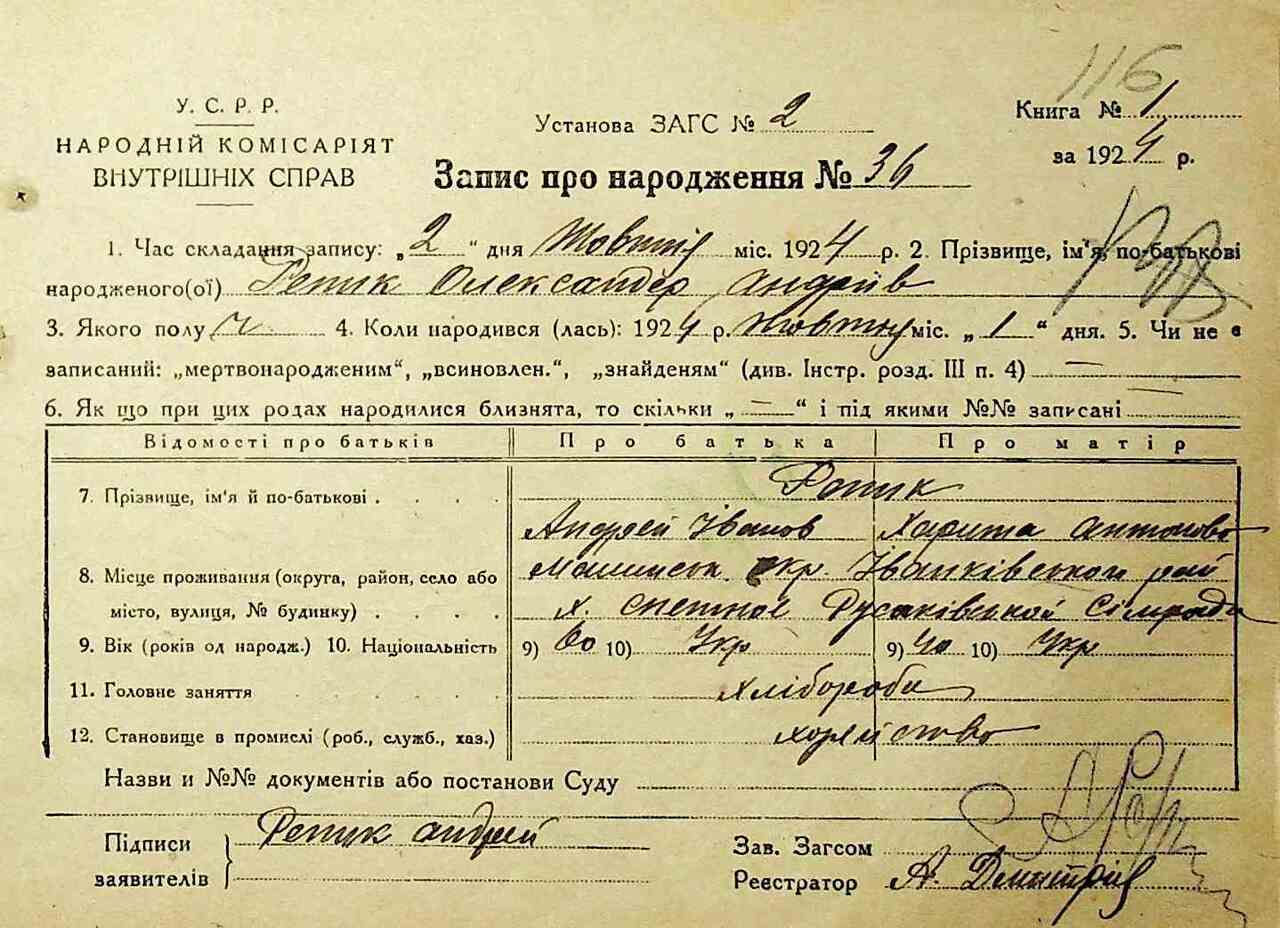 116
У. С. Р. Р.
НАРОДНІЙ КОМІСАРІЯТ
ВНУТРІШНІХ СПРАВ
Установа ЗАГС № 2
Книга № 1
за 1924 р.
Запис про народження № 36
1. Час складання запису: „2“ дня Жовтня міс. 1924 р. 2. Прізвище, ім'я, по-батькові
народженого(ої) Репик Олександер Андріїв
3. Якого полу ч 4. Коли народився (лась): 1924 р. жовтня міс. „1“ дня. 5. Чи не є
записаний: „мертвонародженим“, „всиновлен.“, „знайденям“ (див. Інстр. розд. III п. 4) —
6. Як що при цих родах народилися близнята, то скільки „—“ і під якими №№ записані —
Відомості про батьків Про батька Про матір
7. Прізвище, ім'я й по-батькові . . . . Репик
Андрей Іванов Харита Антонова
8. Місце проживання (округа, район, село або Малинськ. окр. Іванківського рай
місто, вулиця, № будинку) . . . . х. Русаківської Сілради
9. Вік (років од народж.) 10. Національність 9) 60 10) Укр 9) 40 10) Укр
11. Головне заняття . . . . хлібороби
12. Становище в промислі (роб., служб., хаз.)
Назви и №№ документів або постанови Суду
Підписи
заявителів
Репик Андрей
Зав. Загсом
Реєстратор А.